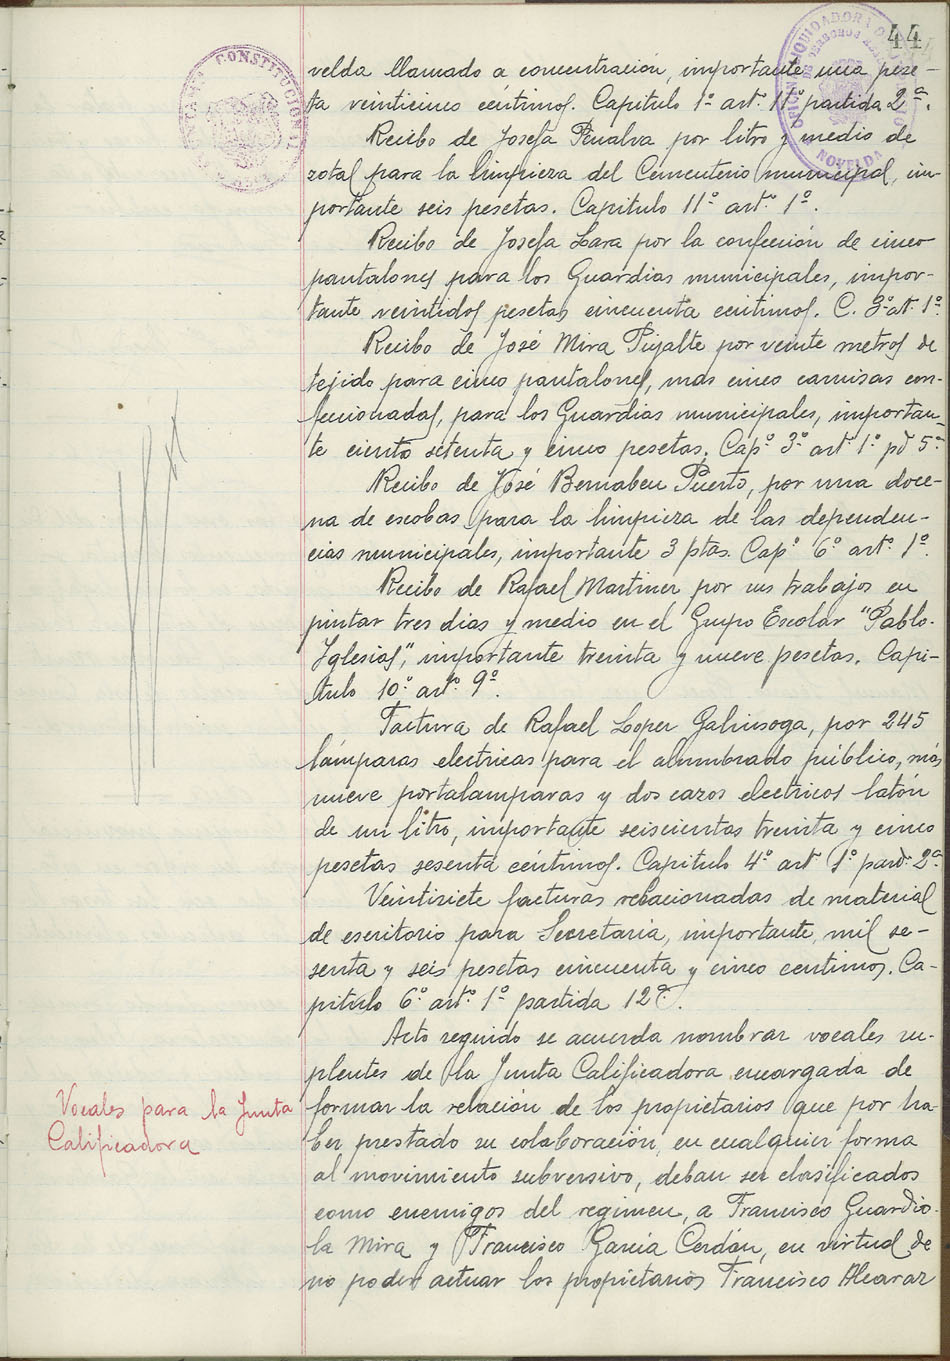 44
velda llamado a concentración, importante una pese-
ta veinticinco céntimos. Capitulo 1º art. 11º partida 2ª.
Recibo de Josefa Penalva por litro y medio de
zotal para la limpieza del Cementerio municipal, im-
portante seis pesetas. Capitulo 11º artº 1º.
Recibo de Josefa Lara por la confección de cinco
pantalones para los Guardias municipales, impor-
tante veintidos pesetas cincuenta centimos. C. 3º art. 1º.
Recibo de José Mira Pujalte por veinte metros de
tejido para cinco pantalones, mas cinco camisas con-
feccionadas, para los Guardias municipales, importan-
te ciento setenta y cinco pesetas. Capº 3º artº 1º pd 5ª
Recibo de José Bernabeu Puerto, por una doce-
na de escobas para la limpieza de las dependen-
cias municipales, importante 3 ptas. Capº 6º artº 1º.
Recibo de Rafael Martinez por sus trabajos en
pintar tres dias y medio en el Grupo Escolar "Pablo-
Iglesias", importante treinta y nueve pesetas. Capi-
tulo 10º artº 9º.
Factura de Rafael Lopez Galiusoga, por 245
lámparas electricas para el alumbrado público, más
nueve portalamparas y dos cazos electricos latón
de un litro, importante seiscientas treinta y cinco
pesetas sesenta céntimos. Capitulo 4º art 1º pard. 2ª
Veintisiete facturas relacionadas de material
de escritorio para Secretaria, importante, mil se-
senta y seis pesetas cincuenta y cinco centimos. Ca-
pitulo 6º artº 1º partida 12ª.
Acto seguido se acuerda nombrar vocales su-
plentes de la Junta Calificadora encargada de
Vocales para la Junta
Calificadora
formar la relación de los propietarios que por ha-
ber prestado su colaboración, en cualquier forma
al movimiento subversivo, deban ser clasificados
como enemigos del regimen, a Francisco Guardio-
la Mira y Francisco García Cerdán, en virtud de
no poder actuar los propietarios Francisco Alcaraz
CONSTITUCIONAL
NOVELDA